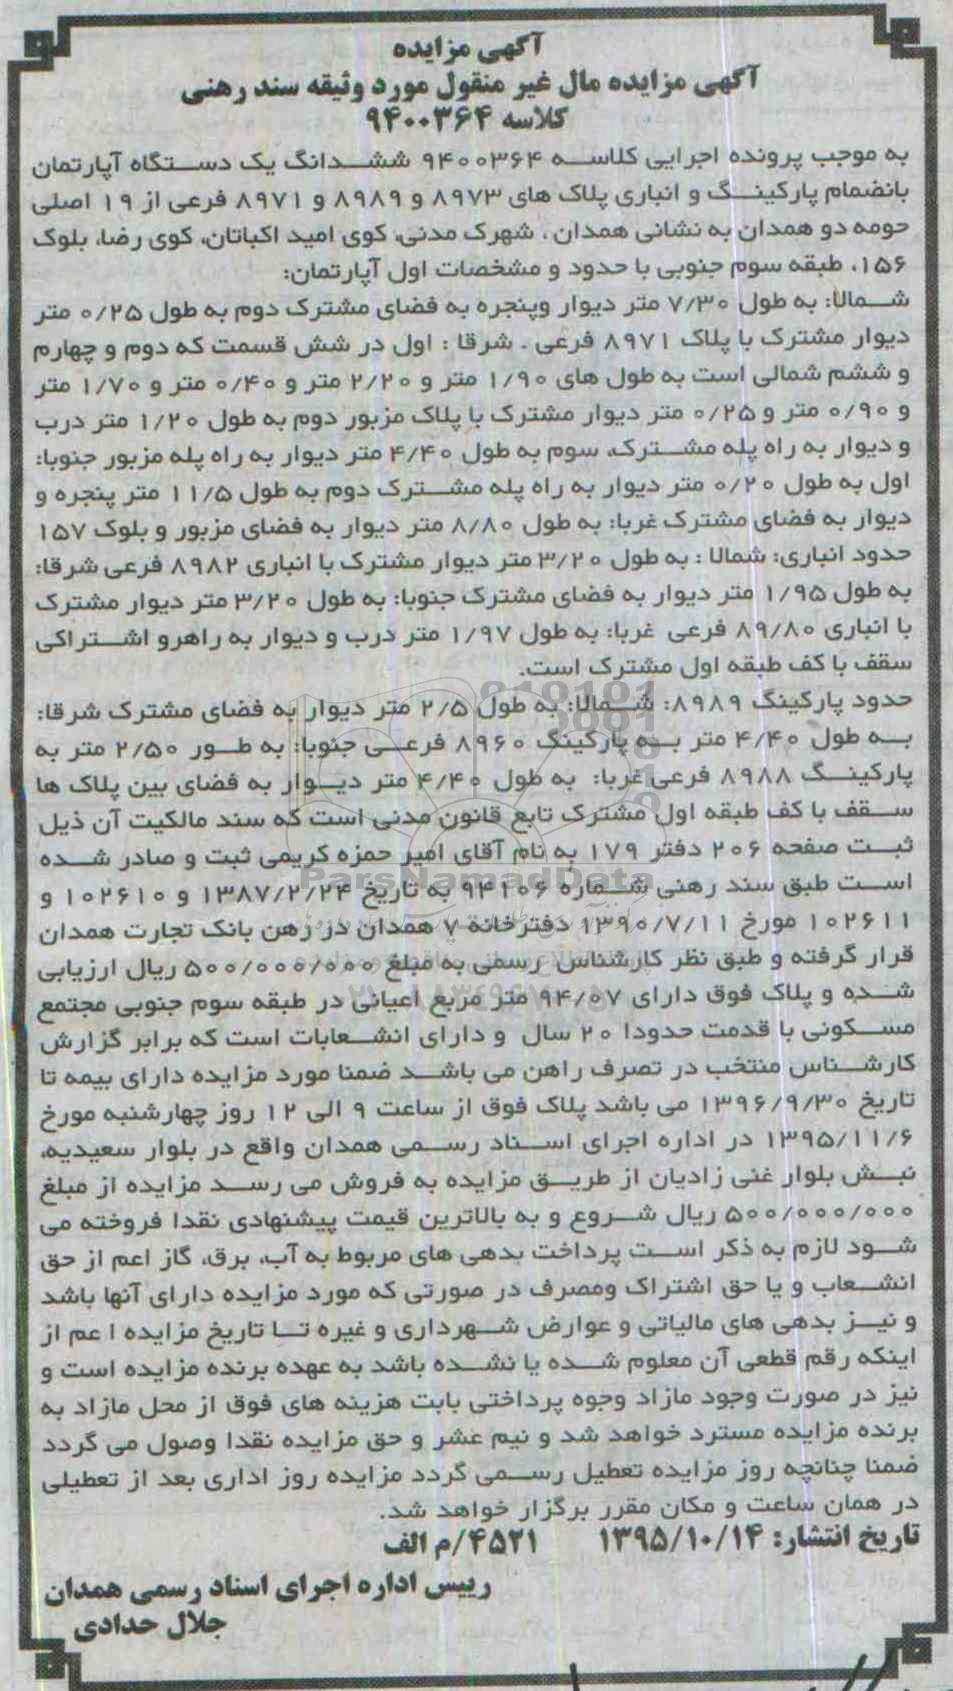 آگهی مزایده
آگهی مزایده مال غیر منقول مورد وثیقه سند رهنی
کلاسه ۹۴۰۰۳۶۴
به موجب پرونده اجرایی کلاسه ۹۴۰۰۳۶۴ ششدانگ یک دستگاه آپارتمان
بانضمام پارکینگ و انباری پلاک های ۸۹۷۳ و ۸۹۸۹ و ۸۹۷۱ فرعی از ۱۹ اصلی
حومه دو همدان به نشانی همدان، شهرک مدنی، کوی امید اکباتان، کوی رضا، بلوک
۱۵۶، طبقه سوم جنوبی با حدود و مشخصات اول آپارتمان:
شمالا: به طول ۷/۳۰ متر دیوار وپنجره به فضای مشترک دوم به طول ۰/۲۵ متر
دیوار مشترک با پلاک ۸۹۷۱ فرعی . شرقا : اول در شش قسمت که دوم و چهارم
و ششم شمالی است به طول های ۱/۹۰ متر و ۲/۲۰ متر و ۰/۴۰ متر و ۱/۷۰ متر
و ۰/۹۰ متر و ۰/۲۵ متر دیوار مشترک با پلاک مزبور دوم به طول ۱/۲۰ متر درب
و دیوار به راه پله مشترک، سوم به طول ۴/۴۰ متر دیوار به راه پله مزبور جنوبا:
اول به طول ۰/۲۰ متر دیوار به راه پله مشترک دوم به طول ۱۱/۵ متر پنجره و
دیوار به فضای مشترک غربا: به طول ۸/۸۰ متر دیوار به فضای مزبور و بلوک ۱۵۷
حدود انباری: شمالا : به طول ۳/۲۰ متر دیوار مشترک با انباری ۸۹۸۲ فرعی شرقا:
به طول ۱/۹۵ متر دیوار به فضای مشترک جنوبا: به طول ۳/۲۰ متر دیوار مشترک
با انباری ۸۹/۸۰ فرعی غربا: به طول ۱/۹۷ متر درب و دیوار به راهرو اشتراکی
سقف با کف طبقه اول مشترک است.
حدود پارکینگ ۸۹۸۹: شمالا: به طول ۲/۵ متر دیوار به فضای مشترک شرقا:
به طول ۴/۴۰ متر به پارکینگ ۸۹۶۰ فرعی جنوبا: به طور ۲/۵۰ متر به
پارکینگ ۸۹۸۸ فرعی غربا: به طول ۴/۴۰ متر دیوار به فضای بین پلاک ها
سقف با کف طبقه اول مشترک تابع قانون مدنی است که سند مالکیت آن ذیل
ثبت صفحه ۲۰۶ دفتر ۱۷۹ به نام آقای امیر حمزه کریمی ثبت و صادر شده
است طبق سند رهنی شماره ۹۴۱۰۶ به تاریخ ۱۳۸۷/۲/۲۴ و ۱۰۲۶۱۰ و
۱۰۲۶۱۱ مورخ ۱۳۹۰/۷/۱۱ دفترخانه ۷ همدان در رهن بانک تجارت همدان
قرار گرفته و طبق نظر کارشناس رسمی به مبلغ ۵۰۰/۰۰۰/۰۰۰ ریال ارزیابی
شده و پلاک فوق دارای ۹۴/۰۷ متر مربع اعیانی در طبقه سوم جنوبی مجتمع
مسکونی با قدمت حدودا ۲۰ سال و دارای انشعابات است که برابر گزارش
کارشناس منتخب در تصرف راهن می باشد ضمنا مورد مزایده دارای بیمه تا
تاریخ ۱۳۹۶/۹/۳۰ می باشد پلاک فوق از ساعت ۹ الی ۱۲ روز چهارشنبه مورخ
۱۳۹۵/۱۱/۶ در اداره اجرای اسناد رسمی همدان واقع در بلوار سعیدیه،
نبش بلوار غنی زادیان از طریق مزایده به فروش می رسد مزایده از مبلغ
۵۰۰/۰۰۰/۰۰۰ ریال شروع و به بالاترین قیمت پیشنهادی نقدا فروخته می
شود لازم به ذکر است پرداخت بدهی های مربوط به آب، برق، گاز اعم از حق
انشعاب و یا حق اشتراک ومصرف در صورتی که مورد مزایده دارای آنها باشد
و نیز بدهی های مالیاتی و عوارض شهرداری و غیره تا تاریخ مزایده ا عم از
اینکه رقم قطعی آن معلوم شده یا نشده باشد به عهده برنده مزایده است و
نیز در صورت وجود مازاد وجوه پرداختی بابت هزینه های فوق از محل مازاد به
برنده مزایده مسترد خواهد شد و نیم عشر و حق مزایده نقدا وصول می گردد
ضمنا چنانچه روز مزایده تعطیل رسمی گردد مزایده روز اداری بعد از تعطیلی
در همان ساعت و مکان مقرر برگزار خواهد شد.
تاریخ انتشار: ۱۳۹۵/۱۰/۱۴ ۴۵۲۱/م الف
رییس اداره اجرای اسناد رسمی همدان
جلال حدادی
ParsNamadData